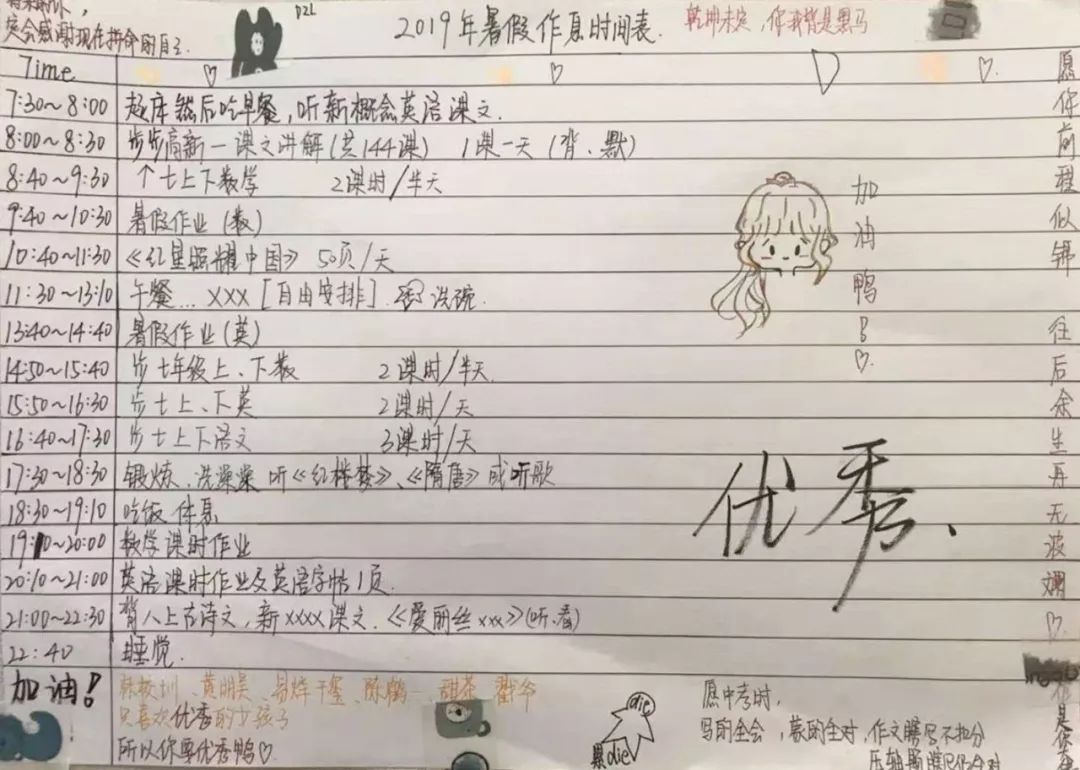 定会感谢现在拼命的自己.
D2L
2019年暑假作息时间表.
乾坤未定，你我皆是黑马
Time
7:30~8:00 起床然后吃早餐,听新概念英语课文.
8:00~8:30 步步高新一课文讲解(共144课) 1课一天(背、默)
8:40~9:30 个七上下数学 2课时/半天
9:40~10:30 暑假作业(数)
10:40~11:30 《红星照耀中国》 50页/天
11:30~13:10 午餐...xxx[自由安排]. 洗碗.
13:40~14:40 暑假作业(英)
14:50~15:40 步七年级上、下数 2课时/半天.
15:50~16:30 步七上、下英 2课时/天
16:40~17:30 步七上下语文 3课时/天
17:30~18:30 锻炼、洗澡澡 听《红楼梦》、《隋唐》或听歌
18:30~19:10 吃饭 休息
19:10~20:00 数学课时作业
20:10~21:00 英语课时作业及英语字帖1页.
21:00~22:30 背八上古诗文,新xxxx课文.《爱丽丝xxx》(听、看)
22:40 睡觉.
加油鸭!
优秀.
愿你前程似锦
往后余生再无波澜
加油!
黄明昊、易烊千玺、陈鹤一、甜茶、戳爷
只喜欢优秀的女孩子
所以你要优秀鸭
die
黑die
愿中考时,
写的全会,蒙的全对,作文瞎写不扣分